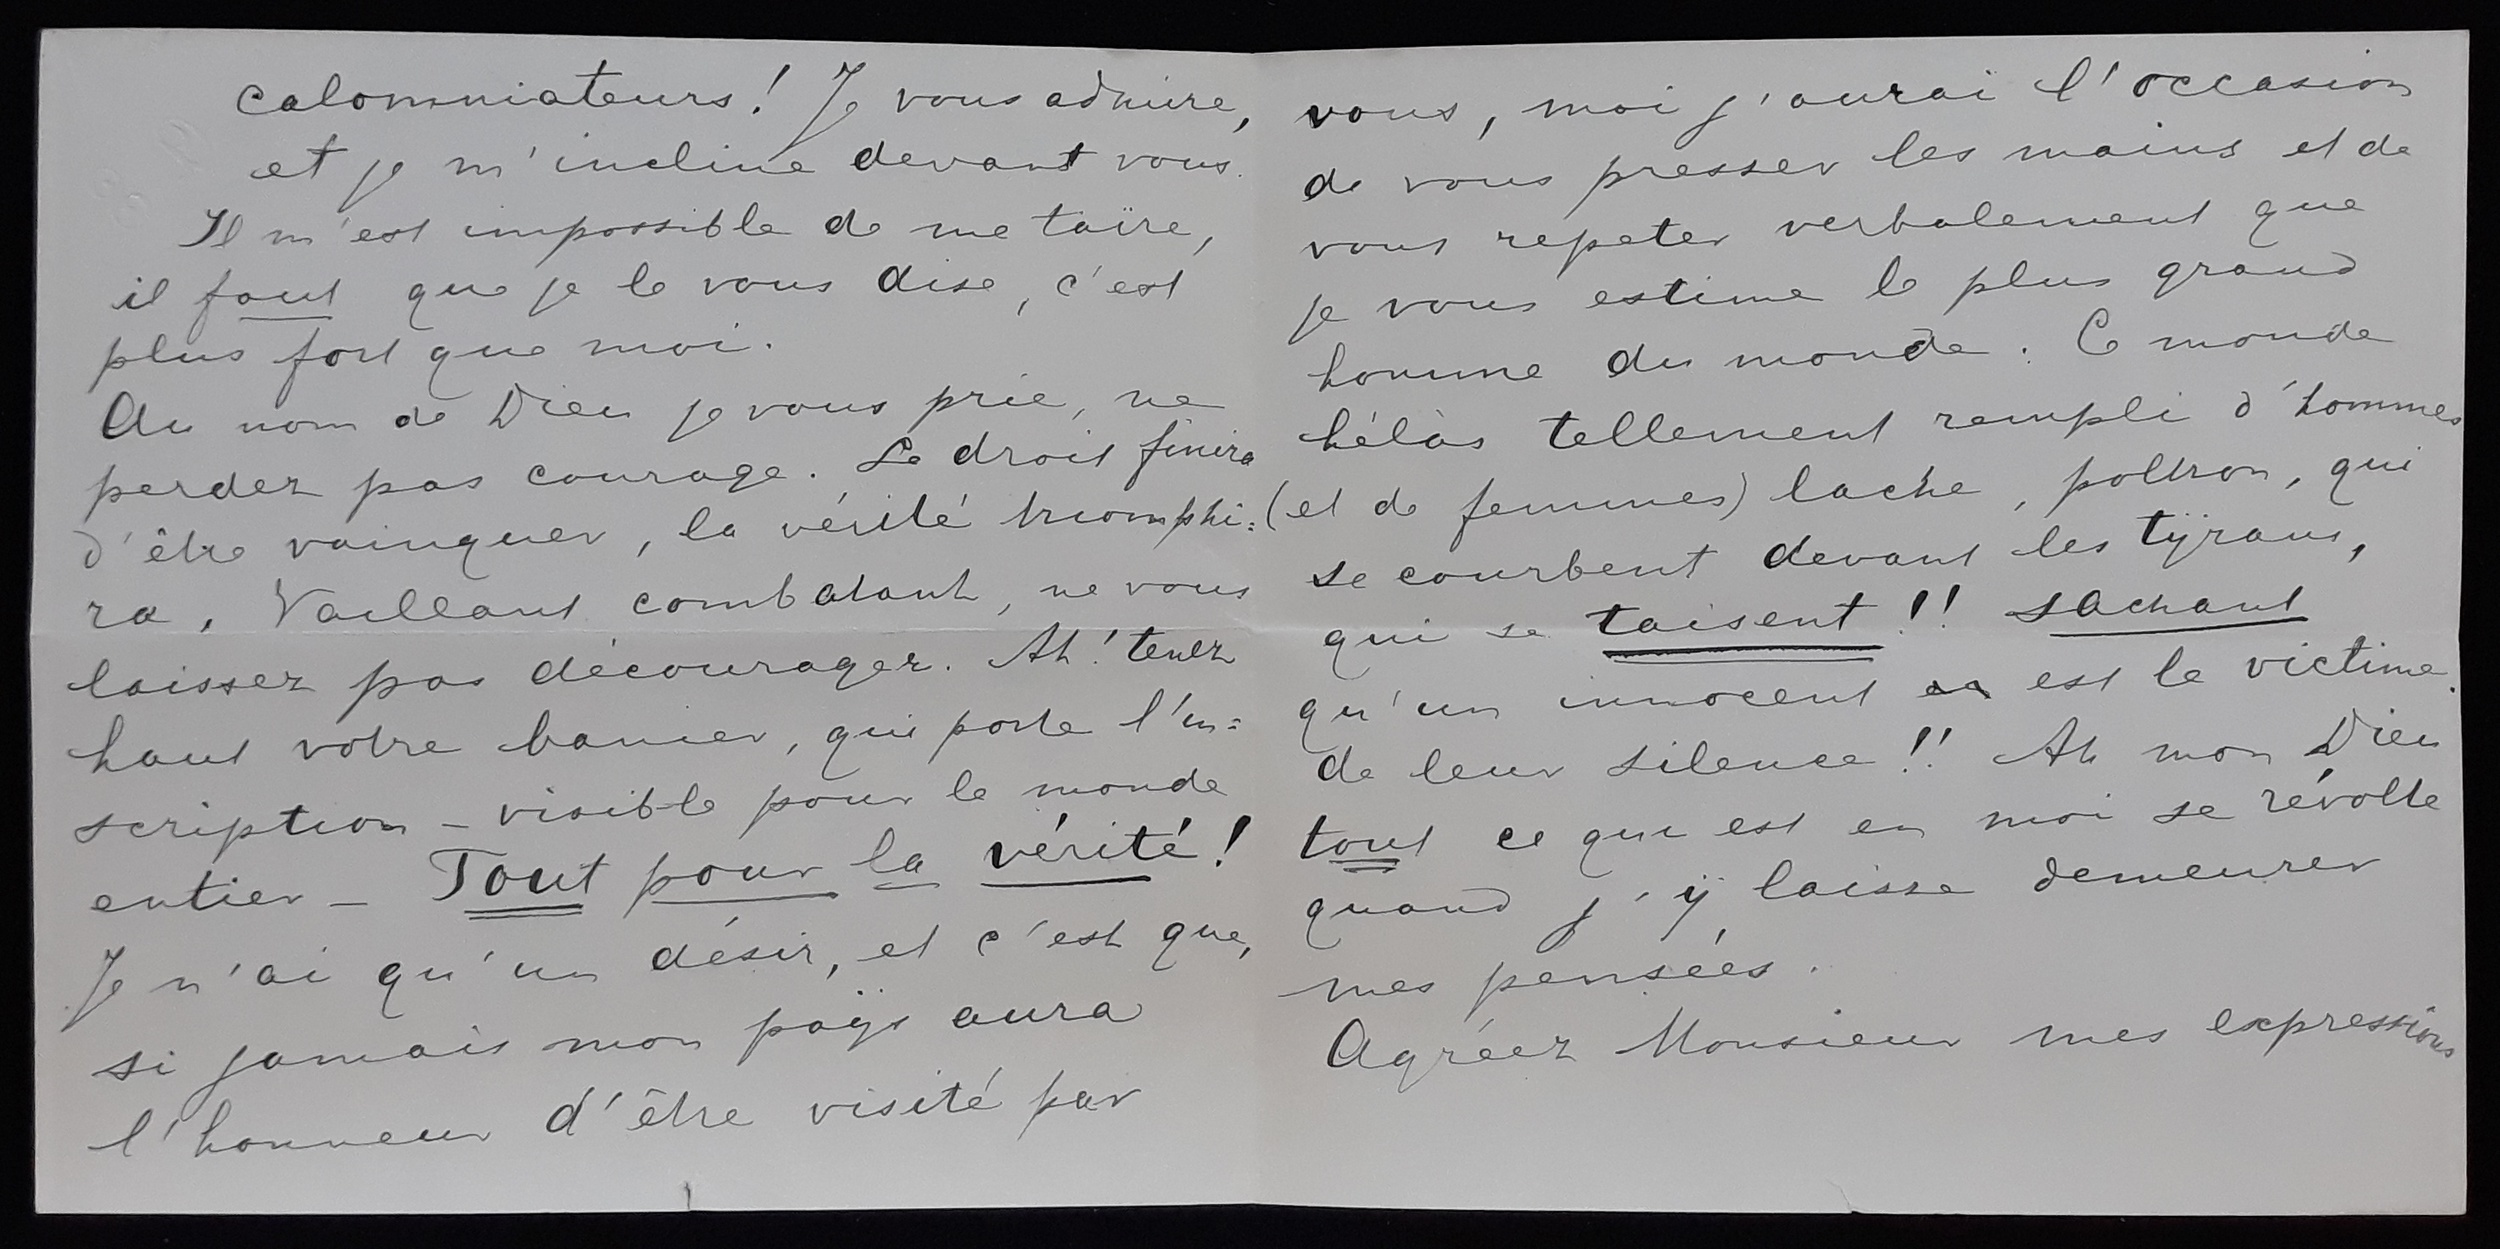 calomniateurs! Je vous admire,
et je m'incline devant vous.
Il m'est impossible de me taïre,
il faut que je le vous dise, c'est
plus fort que moi.
Au nom de Dieu je vous prie, ne
perdez pas courage. Le droit finira
d'être vainquer, la vérité triomphi=
ra, Vaillant combatant, ne vous
laissez pas décourager. Ah! tenez
haut votre banier, qui porte l'in=
scription – visible pour le monde
entier – Tout pour la vérité!
Je n'ai qu'un désir, et c'est que,
si jamais mon paÿs aura
l'honneur d'être visité par
vous, moi j'aurai l'occasion
de vous presser les mains et de
vous repeter verbalement que
je vous estime le plus grand
homme du monde. Ce monde
hélàs tellement rempli d'hommes
(et de femmes) lache, poltron, qui
se courbent devant les tÿrans,
qui se taisent!! sachant
qu'un innocent est le victime
de leur silence!! Ah mon Dieu
tout ce que est en moi se révolte
quand j'ÿ laisse demeurer
mes pensées.
Agréez Monsieur mes expressions